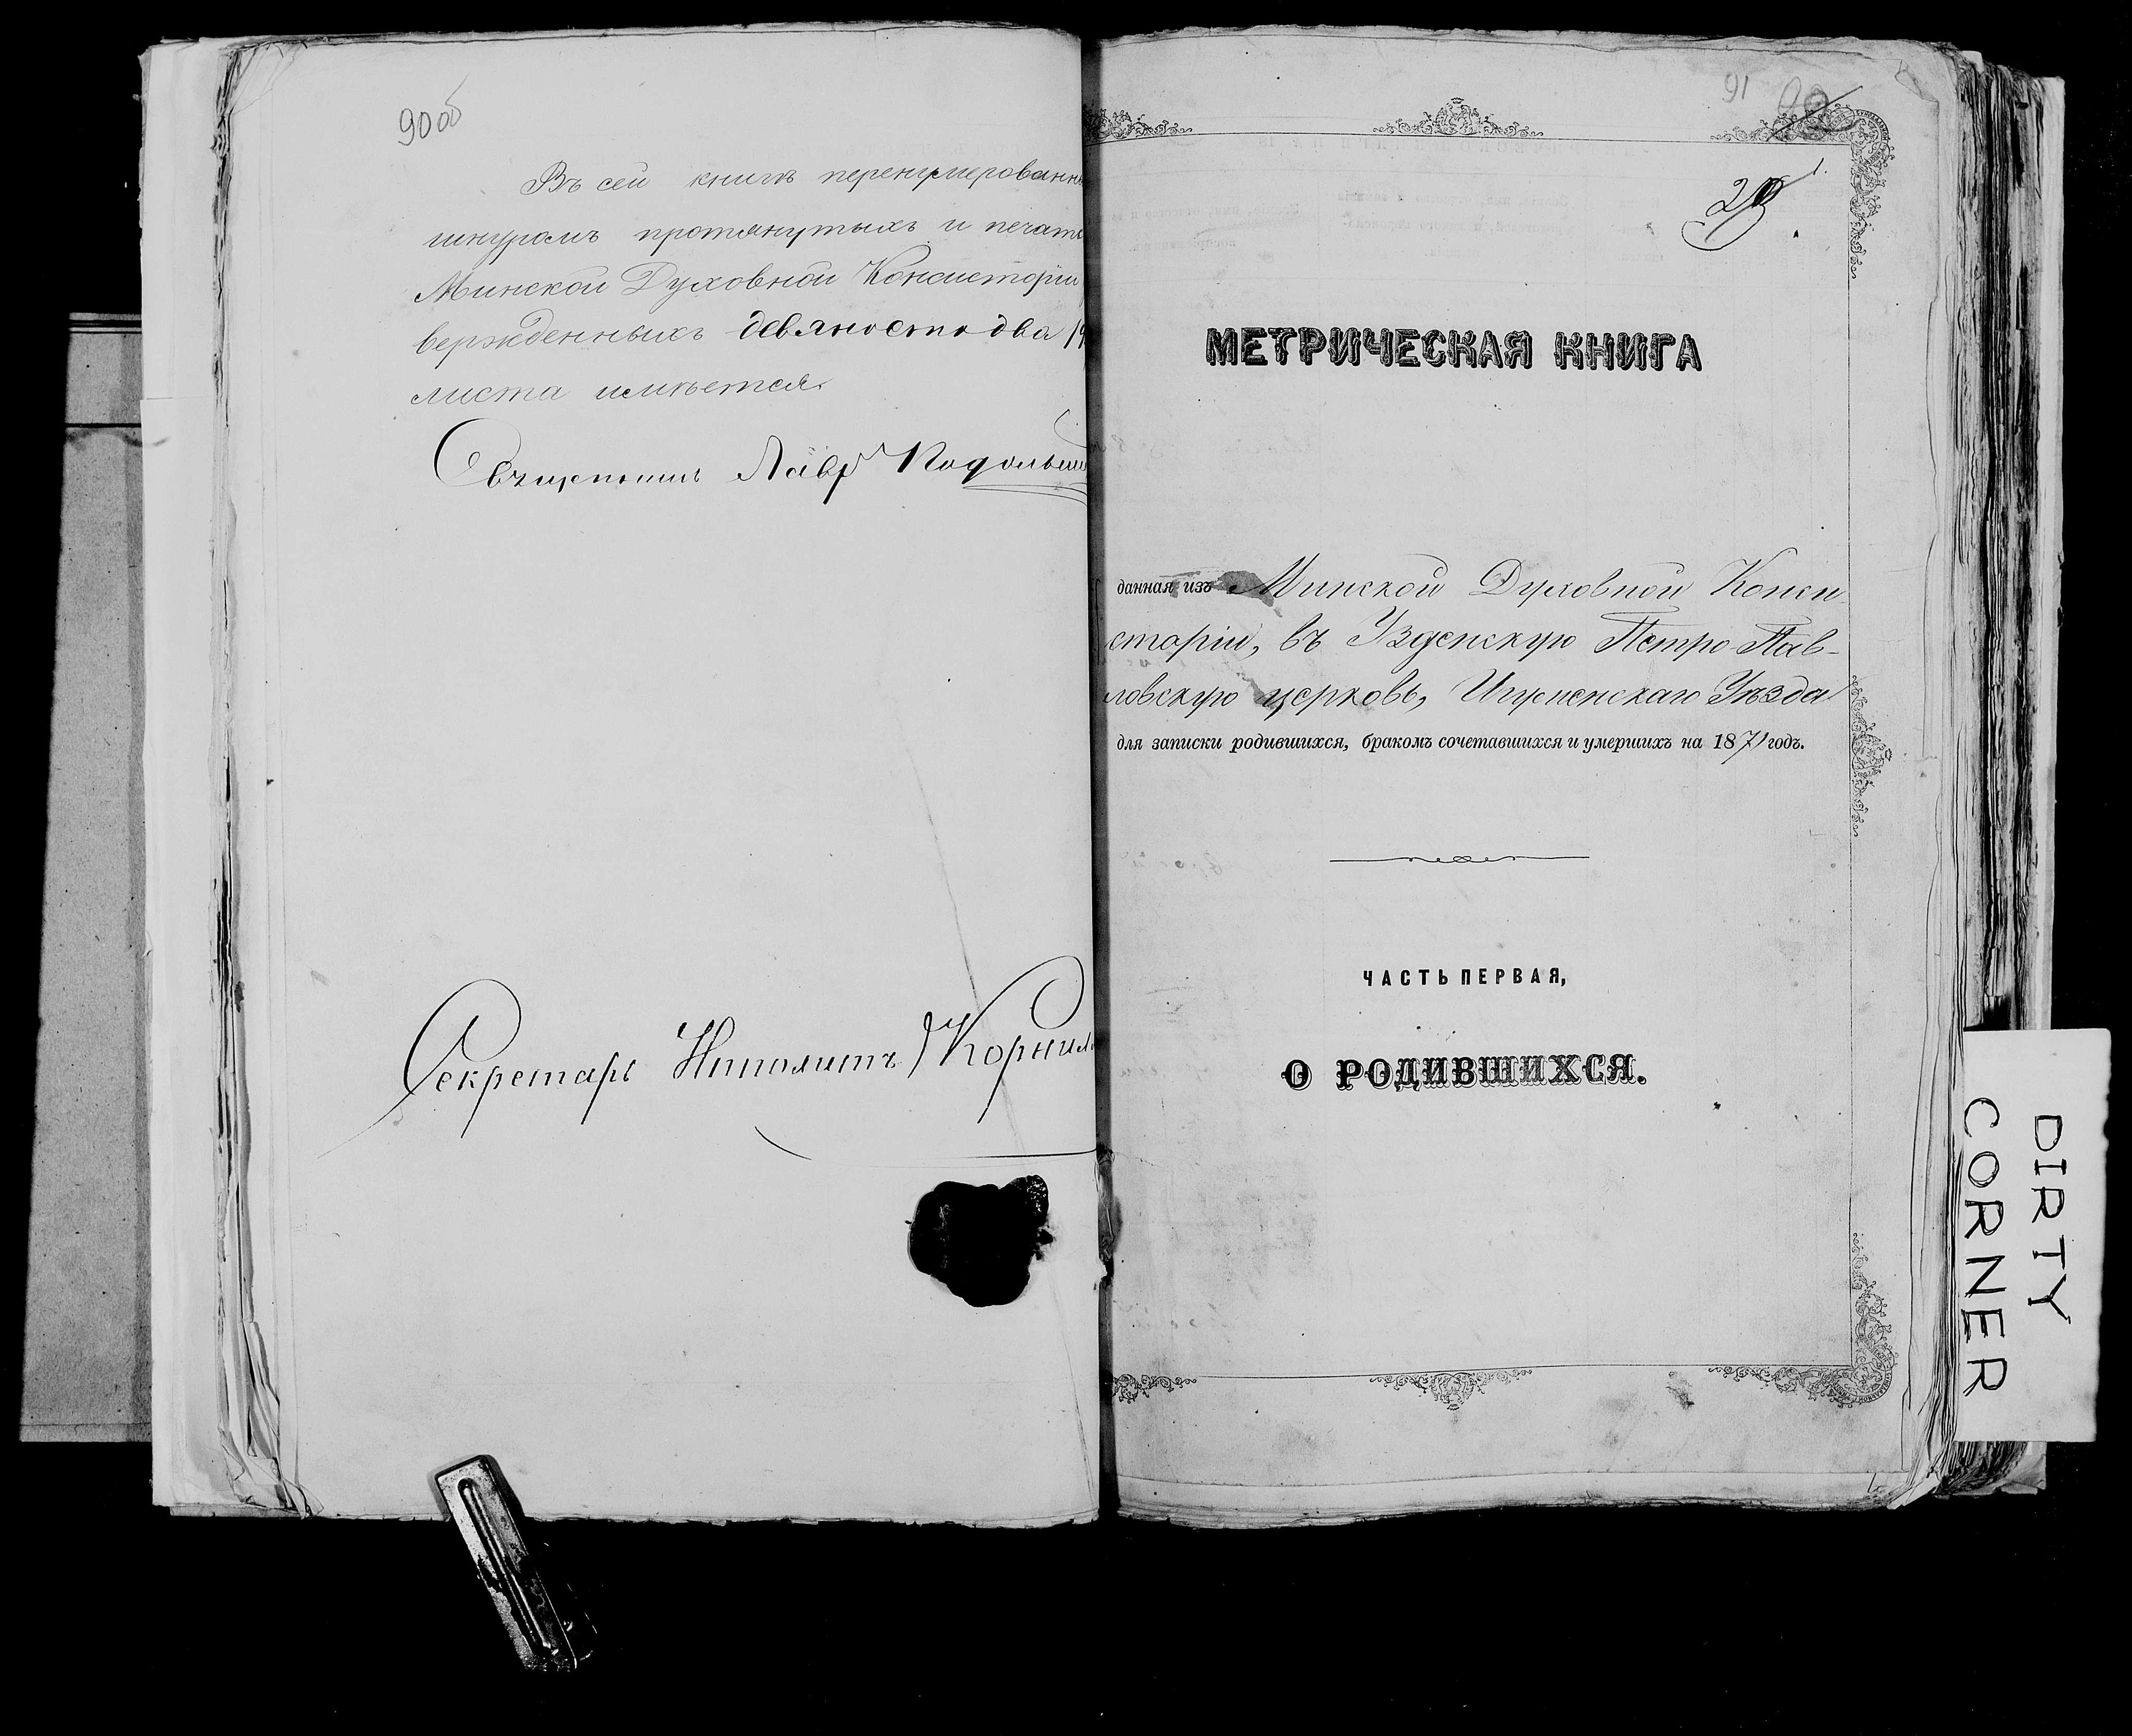 90 об
Въ сей книгѣ перенумерованны
шнуромъ протянутыхъ и печать
Минской Духовной Консисторіи
вержденныхъ девяносто два /9
листа имѣется.
Священникъ Лавр
Секретарь Ипполитъ Корнил
91
МЕТРИЧЕСКАЯ КНИГА
данная изъ Минской Духовной Конси-
сторіи, въ Узденскую Петро-Пав-
ловскую церковь, Игуменскаго Уѣзда
для записки родившихся, бракомъ сочетавшихся и умершихъ на 1871 годъ.
ЧАСТЬ ПЕРВАЯ,
О РОДИВШИХСЯ.
DIRTY
CORNER